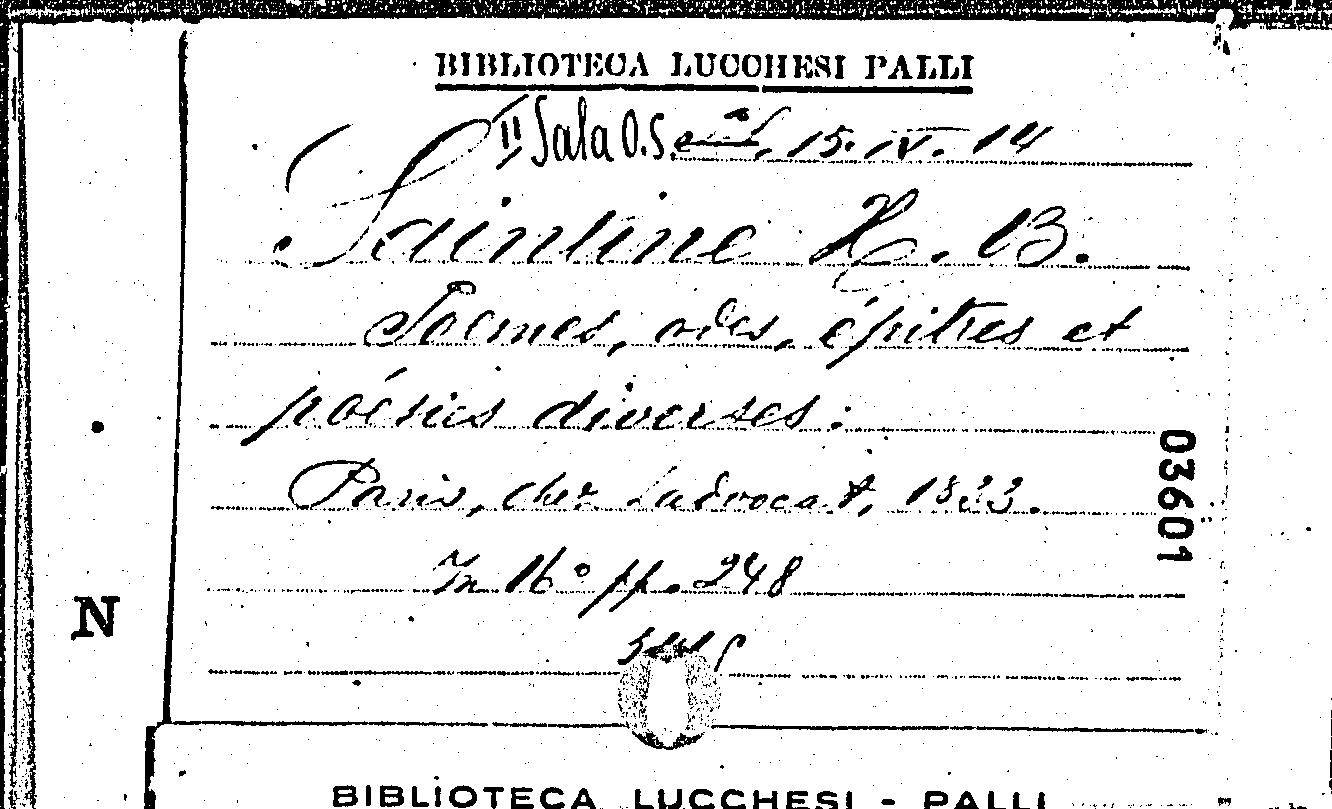 BIBLIOTECA LUCCHESI PALLI
II Sala O.S. 15. IV. 14
Saintine X. B.
Poèmes, odes, épitres et
poésies diverses:
Paris, chez Ladvocat, 1823.
In 16° pp. 248
03601
N
BIBLIOTECA LUCCHESI - PALLI